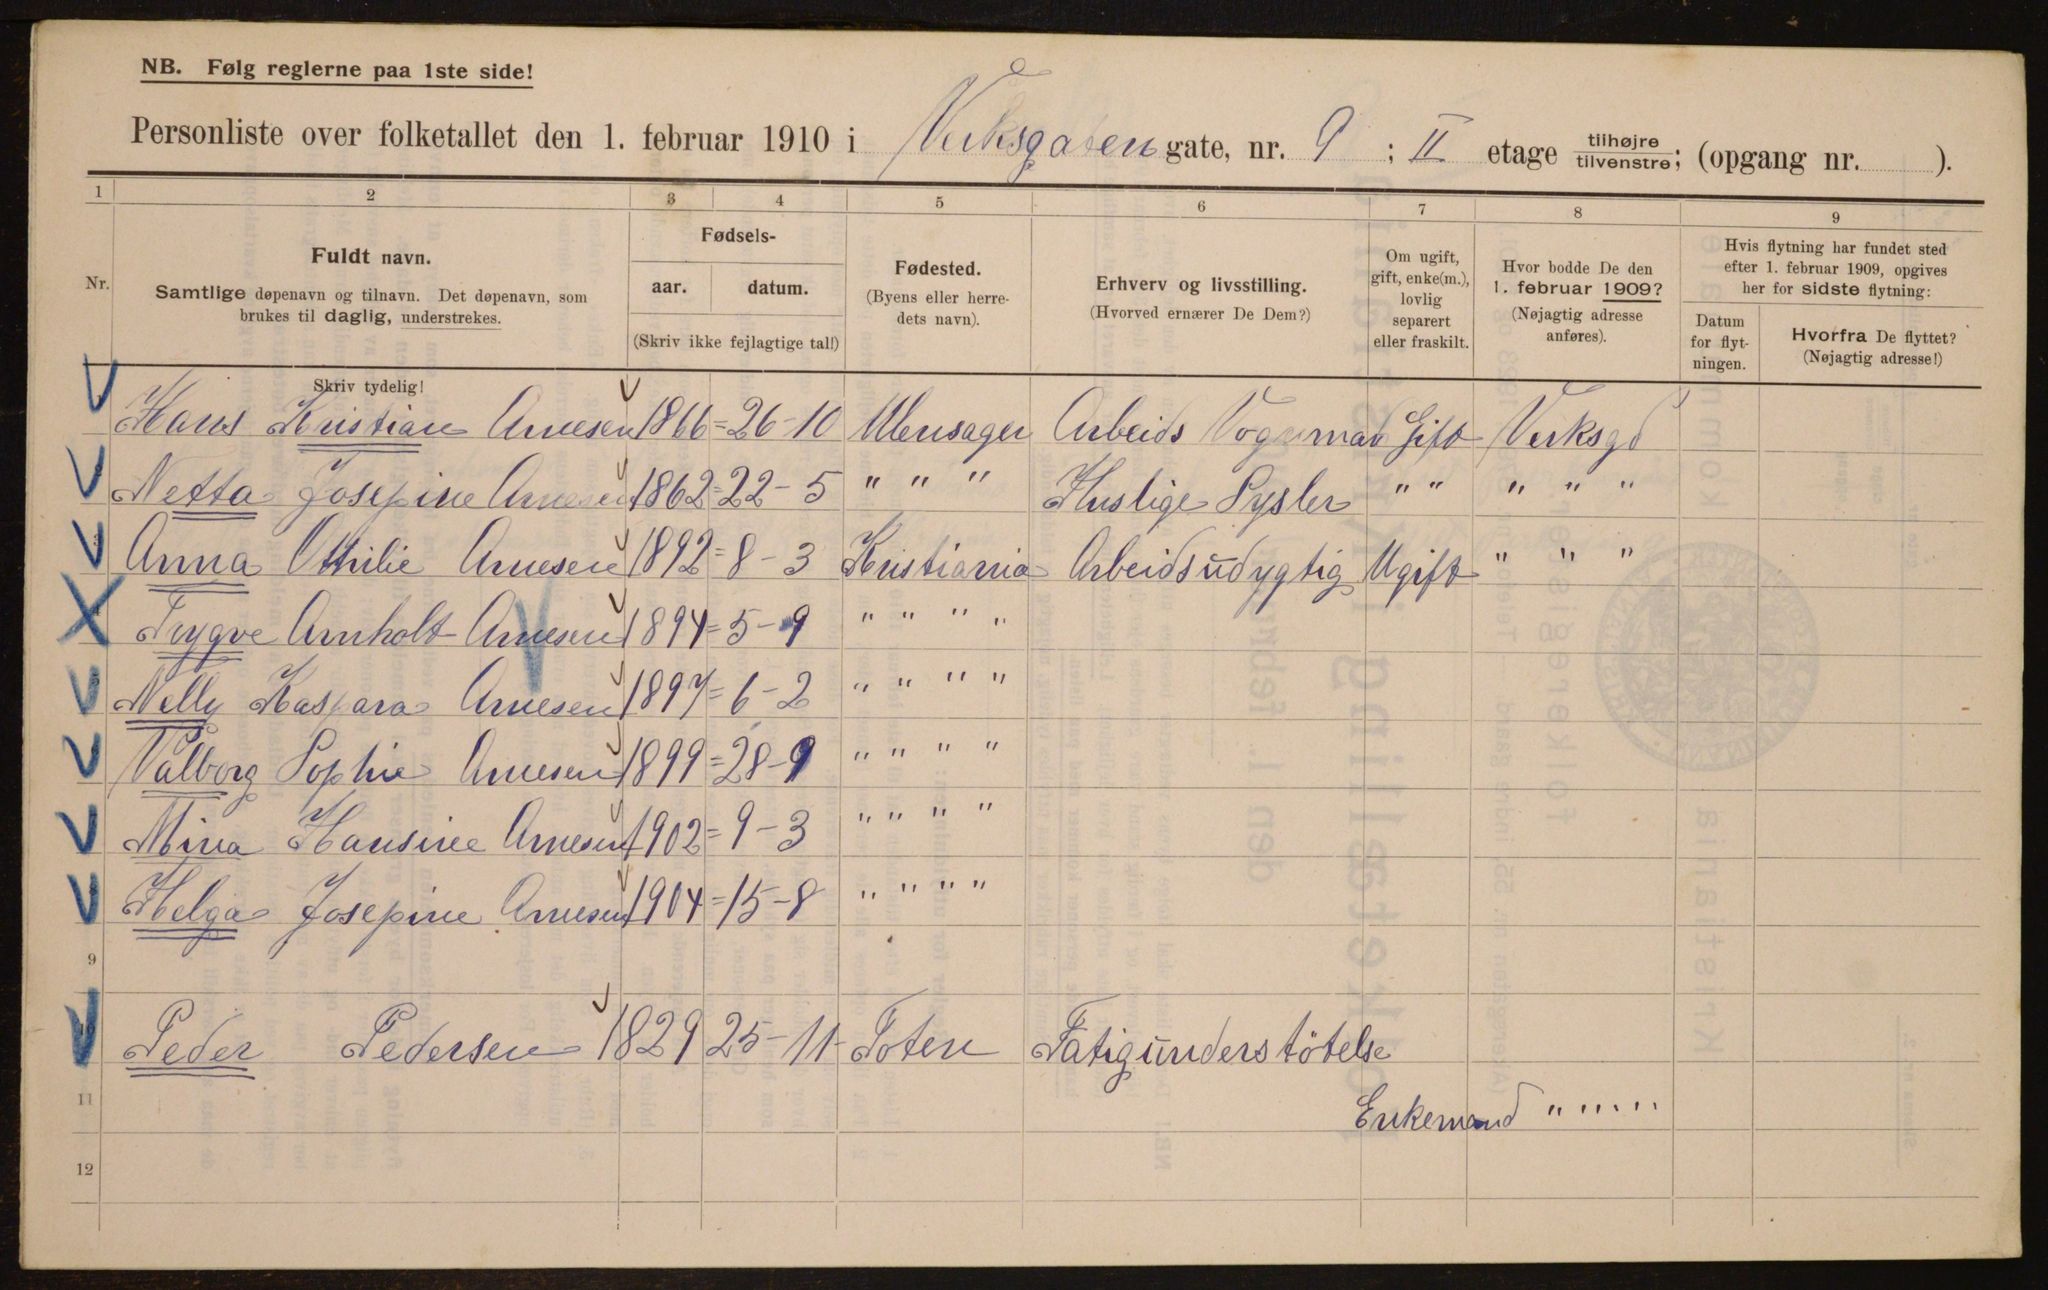 NB. Følg reglerne paa 1ste side!
Personliste over folketallet den 1. februar 1910 i Verksgaten gate, nr. 9 ; II etage tilhøjre tilvenstre; (opgang nr. ).
1 2 3 4 5 6 7 8 9
Nr.
Fuldt navn.
Samtlige døpenavn og tilnavn. Det døpenavn, som
brukes til daglig, understrekes.
Skriv tydelig!
Fødsels-
aar. datum.
(Skriv ikke fejlagtige tal!)
Fødested.
(Byens eller herre-
dets navn).
Erhverv og livsstilling.
(Hvorved ernærer De Dem?)
Om ugift,
gift, enke(m.),
lovlig
separert
eller fraskilt.
Hvor bodde De den
1. februar 1909?
(Nøjagtig adresse
anføres).
Hvis flytning har fundet sted
efter 1. februar 1909, opgives
her for sidste flytning:
Datum
for flyt-
ningen.
Hvorfra De flyttet?
(Nøjagtig adresse!)
Hans Kristian Arnesen 1866 = 26-10 Ulensager Arbeids Vognmand Gift Verksgd
Netta Josepine Arnesen 1862 = 22-5 " " " Huslige Sysler " " " " "
Anna Othilie Arnesen 1892 = 8-3 Kristiania Arbeidsudygtig Ugift " " "
Trygve Arnholt Arnesen 1894 = 5-9 " " " "
Nelly Kaspara Arnesen 1897 = 6-2 " " " "
Valborg Sophie Arnesen 1899 = 28-9 " " " "
Mina Hansine Arnesen 1902 = 9-3 " " " "
Helga Josepine Arnesen 1904 = 15-8 " " " "
9
10 Peder Pedersen 1829 25-11- Toten Fatigünderstötelse
11 Enkemand " " " "
12